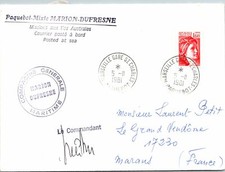 Paquebot-Mixte MARION-DUFRESNE
Mission aux Iles Australes
Courrier posté à bord
Posted at sea
MARSEILLE GARE
5-8
1981
COMPAGNIE GENERALE
MARION
DUFRESNE
MARITIME
Le Commandant
Monsieur Laurent Petit
Le Grand Vendôme
17230
Marans (France)